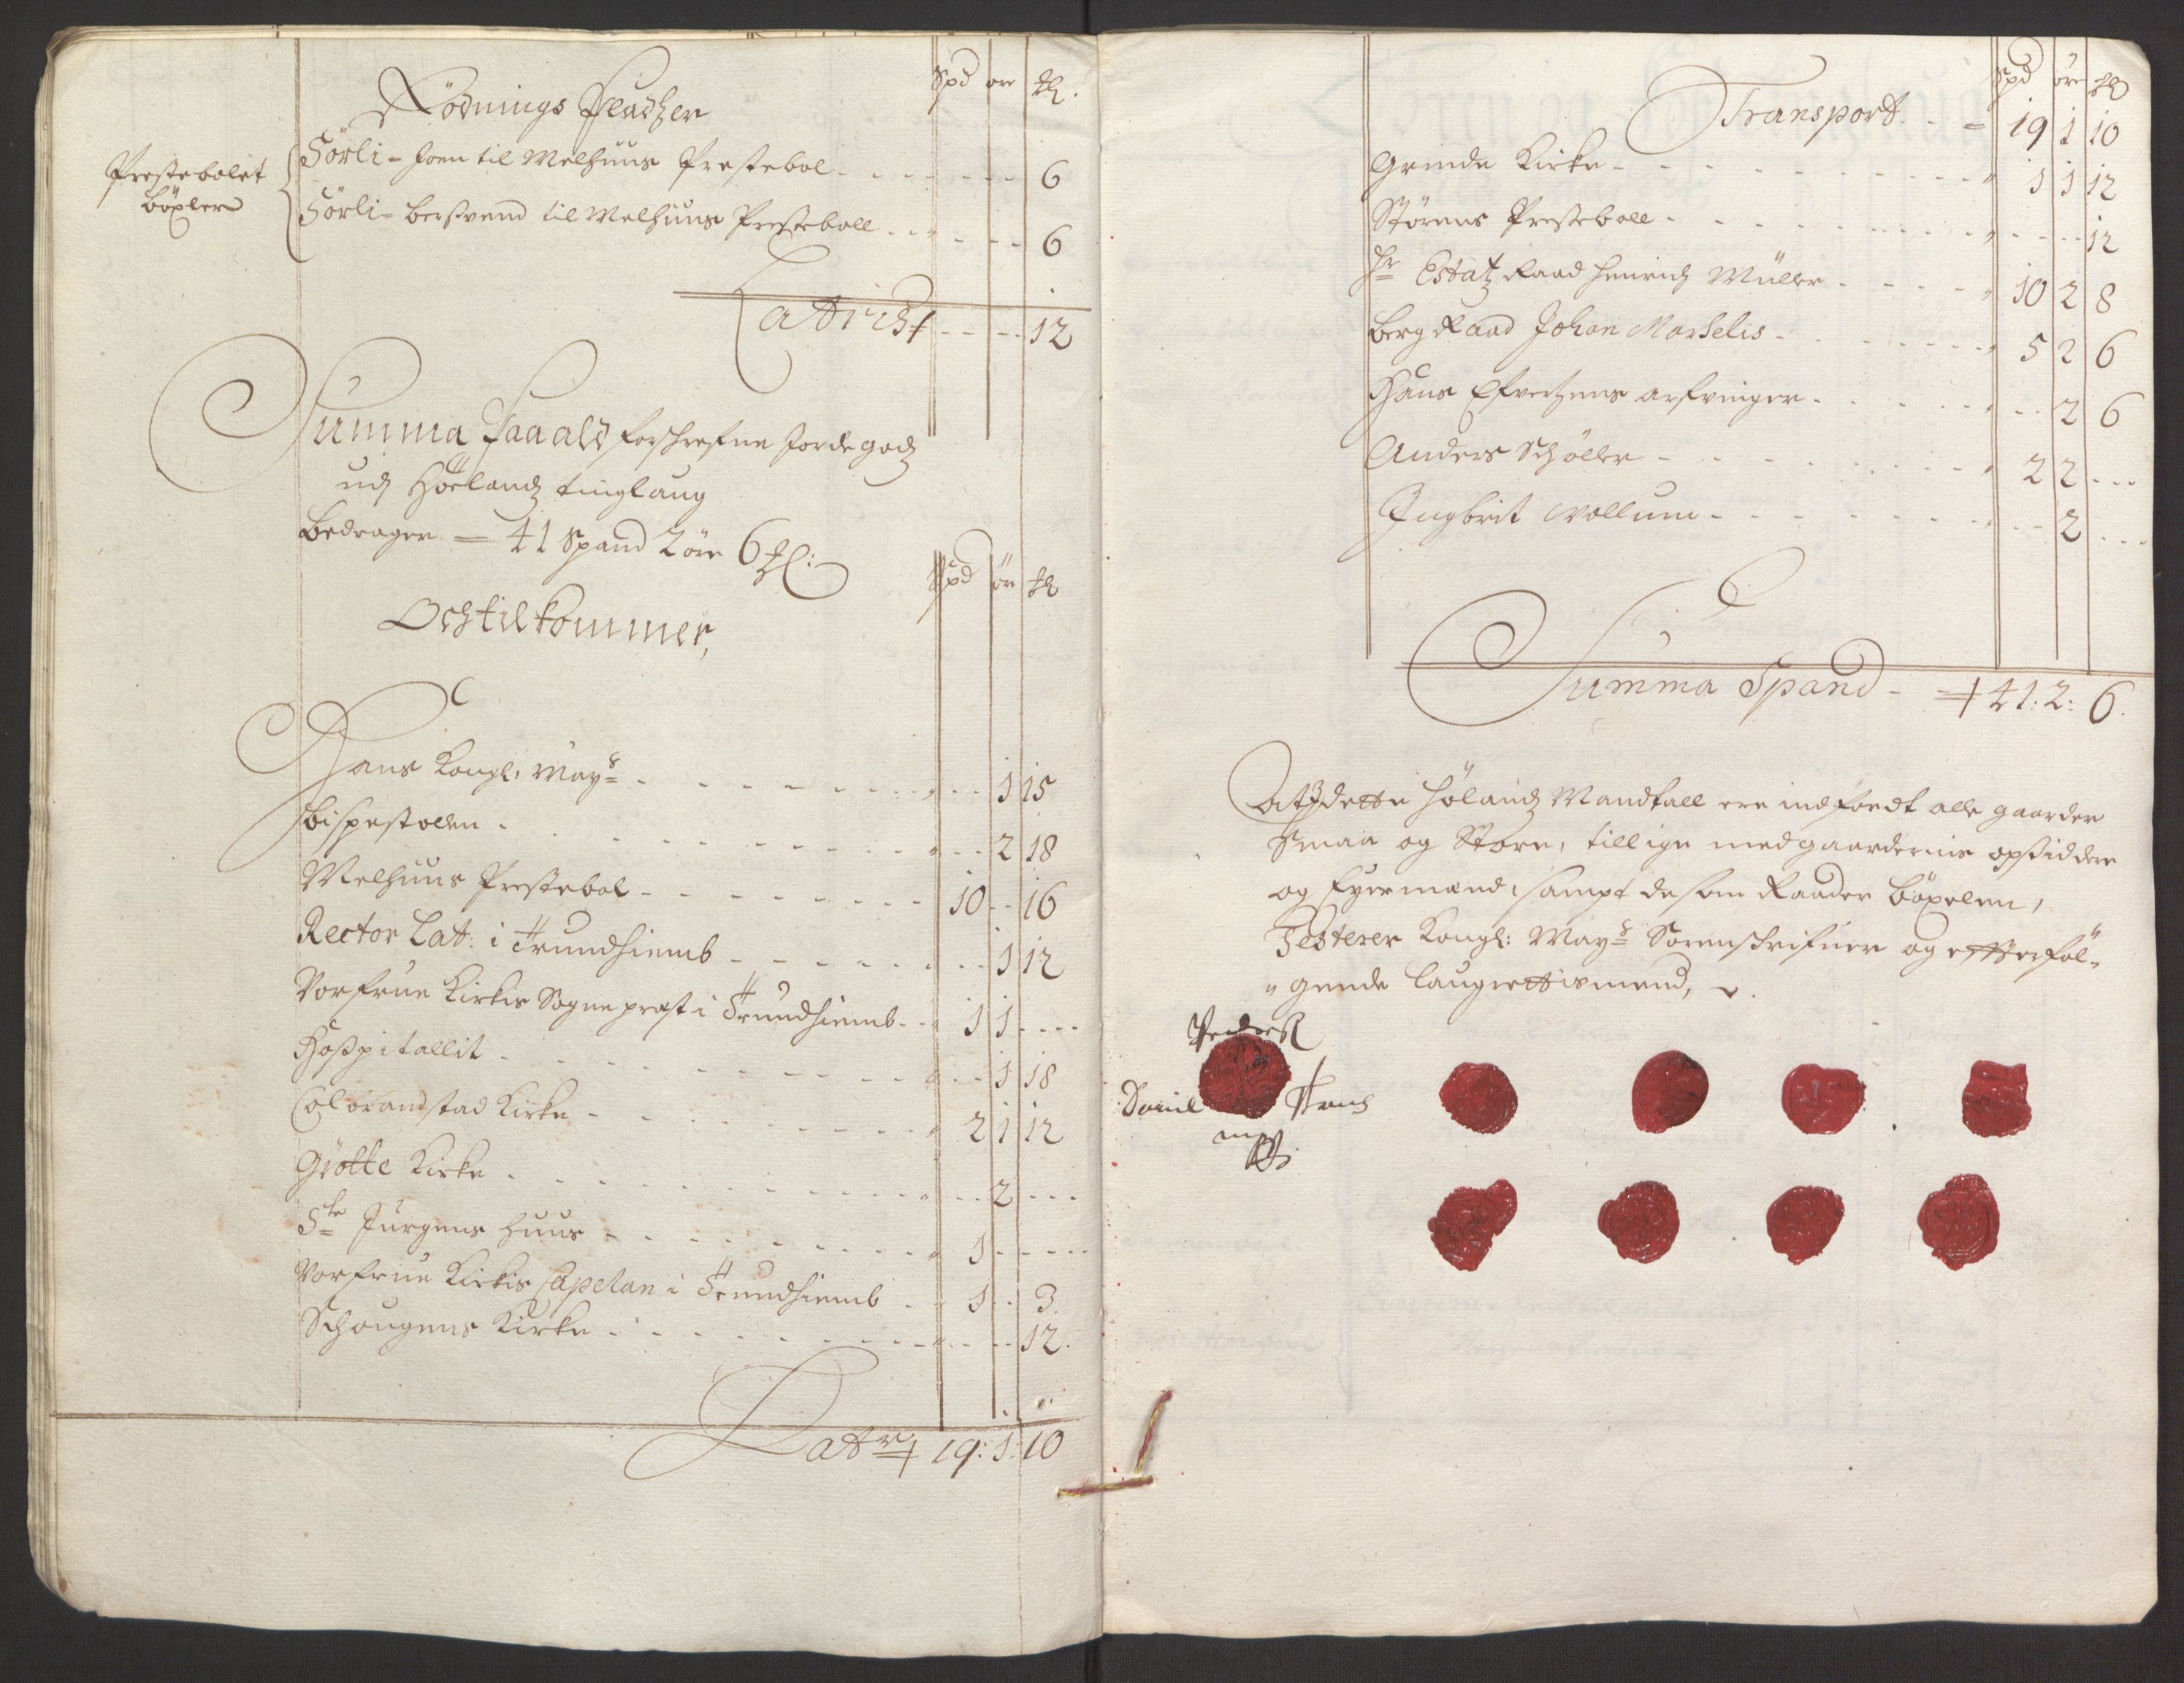 Rödnings Pladtzer
Spd ore
Prestebolet
böxler
Sörli - Joen til Melhuus Prestebol - - - 6
Sörli - berssvend til Melhuus Presteboll - - - 6
Latris - - - 12
Summa Paa alt forschrefne Jordegods
udj Hölandz tinglaug
Bedrager = 41 Spand 2 öre 6
Spd ör
Och tilkommer,
Hans Kongl: Mayß - - - 1 15
Bispestolen - - - 2 18
Melhuus Prestebol - - - 10 - 16
Rector Lat: i Trundhiemb - - - 1 12
Vor frue Kirkis Sogneprest i Trundhiemb - - 1 1 - - -
Hospitallit - - - 1 18
Colbrandstad Kirke - - - 2 1 12
Grötte Kirke - - - 2 - - -
Ste Jürgens Huus - - - 1 - - -
Vor frue Kirkis Capelan i Trundhiemb - - 1 - 3
Schougens Kirke - - - 12
Latr 19: 1: 10
Spd öre
Transport - = 19 1 10
Grinde Kirke - - - 1 1 12
Störens Presteboll - - - 12
Hr Estatz Raad Henrich Müller - - - 10 2 8
Berg Raad Johan Marselis - - - 5 2 6
Hans Efvertsens arfvinger - - - 2 6
Anders Schöller - - - 2 2 - - -
Ingbrit Wollum - - - 2 - - -
Summa Spand - 41: 2: 6.
At J dette Hölandz Mandtall ere indfördt alle gaarder
Smaa og Store, tillige med gaardernis opsiddere
og Eyermænd, sampt de som Raader böxelen,
Testerer Kongl: Mayß Sorenschrifver og efterföl-
" gende laugrettismænd,